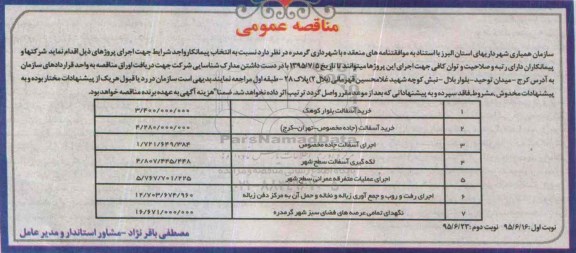 مناقصه عمومی
سازمان همیاری شهرداریهای استان البرز با استناد به موافقتنامه های منعقده با شهرداری گرمدره در نظر دارد نسبت به انتخاب پیمانکار واجد شرایط جهت اجرای پروژه‌های ذیل اقدام نماید شرکتها و
پیمانکاران دارای رتبه و صلاحیت و توان کافی جهت اجرای این پروژه‌ها میتوانند تا تاریخ ۱۳۹۵/۷/۵ با در دست داشتن مدارک شناسایی شرکت جهت دریافت اوراق مناقصه به واحد قراردادهای سازمان
به آدرس کرج - میدان توحید - بلوار بلال - نبش کوچه شهید غلامحسین قهرمانی (بلال ۲) پلاک ۲۸ - طبقه اول مراجعه نمایند بدیهی است سازمان در رد یا قبول هر یک از پیشنهادات مختار بوده و به
پیشنهادات مخدوش، مشروط، فاقد سپرده و به پیشنهاداتی که بعد از موعد مقرر واصل گردد ترتیب اثر داده نخواهد شد. ضمناً هزینه آگهی به عهده برنده مناقصه خواهد بود.
۱ خرید آسفالت بلوار کوهک ۳/۴۰۰/۰۰۰/۰۰۰
۲ خرید آسفالت (جاده مخصوص-تهران-کرج) ۴/۴۸۰/۰۰۰/۰۰۰
۳ اجرای آسفالت جاده مخصوص ۱/۷۲۱/۶۴۹/۳۸۴
۴ لکه گیری آسفالت سطح شهر ۴/۸۰۷/۴۴۵/۴۴۸
۵ اجرای عملیات متفرقه عمرانی سطح شهر ۵/۷۶۷/۷۰۱/۲۲۵
۶ اجرای رفت و روب و جمع آوری زباله و نخاله و حمل آن به مرکز دفن زباله ۱۲/۷۰۳/۶۷۴/۹۶۰
۷ نگهدای تمامی عرصه های فضای سبز شهر گرمدره ۱۶/۶۷۱/۰۰۰/۰۰۰
نوبت اول: ۹۵/۶/۱۶ نوبت دوم: ۹۵/۶/۲۳
مصطفی باقر نژاد - مشاور استاندار و مدیر عامل
ParsNamadData